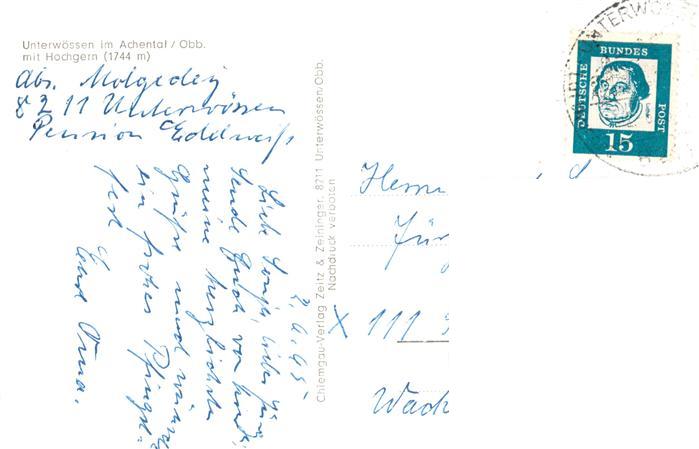 Unterwössen im Achental / Obb.
mit Hochgern (1744 m)
Abs. Molgedey
8211 Unterwössen
Pension Edelweiß
2.6.65
Liebe Sonja, lieber Jürg,
sende Euch von hier
meine herzlichsten
Grüße und wünsche
ein frohes Pfingst-
fest
Eure Oma.
Chiemgau-Verlag Zeitz & Zeininger, 8211 Unterwössen/Obb.
Nachdruck verboten
DEUTSCHE BUNDES POST
15
UNTERWÖS
Herrn
Jür
X 111
Wach